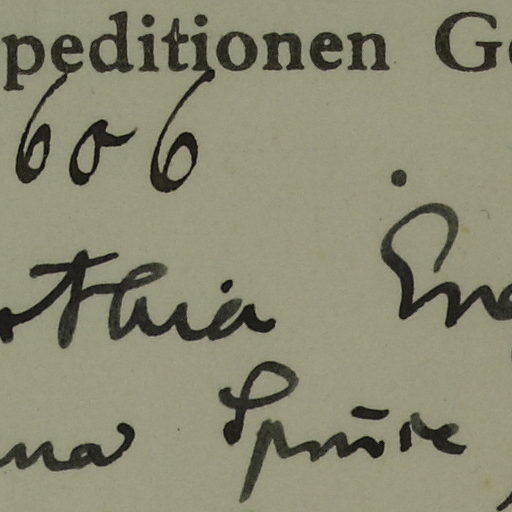 peditionen G
606
thia En
na Spruce